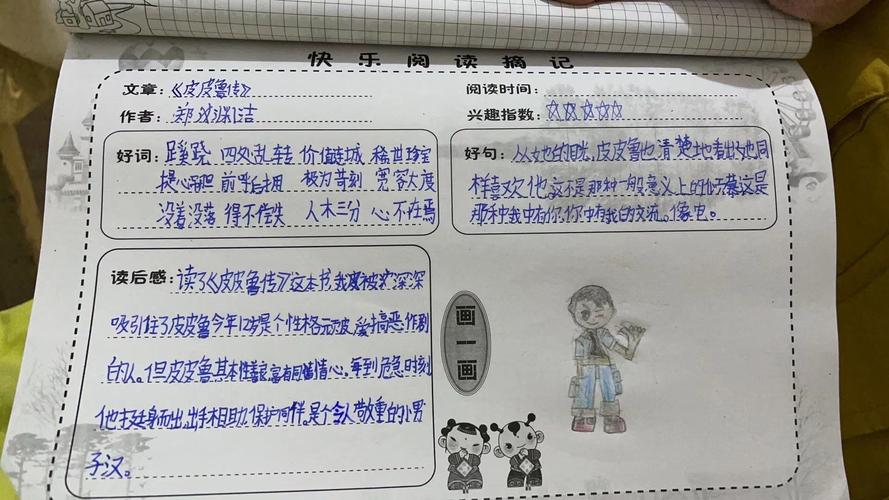 快乐阅读摘记
文章：《皮皮鲁传》
阅读时间：
作者：郑渊洁
兴趣指数：☆☆☆☆☆
好词：蹊跷 四处乱转 价值连城 稀世珍宝
提心吊胆 前呼后拥 极为苛刻 宽容大度
没着没落 得不偿失 入木三分 心不在焉
好句：从她的目光，皮皮鲁也清楚地看出她也同
样喜欢他 这不是那种一般意义上的 这是
那种我中有你，你中有我的交流。像电。
读后感：读了《皮皮鲁传》这本书，我被深深
吸引住了皮皮鲁今年12岁是个性格顽皮，爱搞恶作剧
的人。但皮皮鲁其本性善良富有同情心。每到危急时刻
他挺身而出，出手相助，保护同伴。是个令人敬重的小男
子汉。
画一画